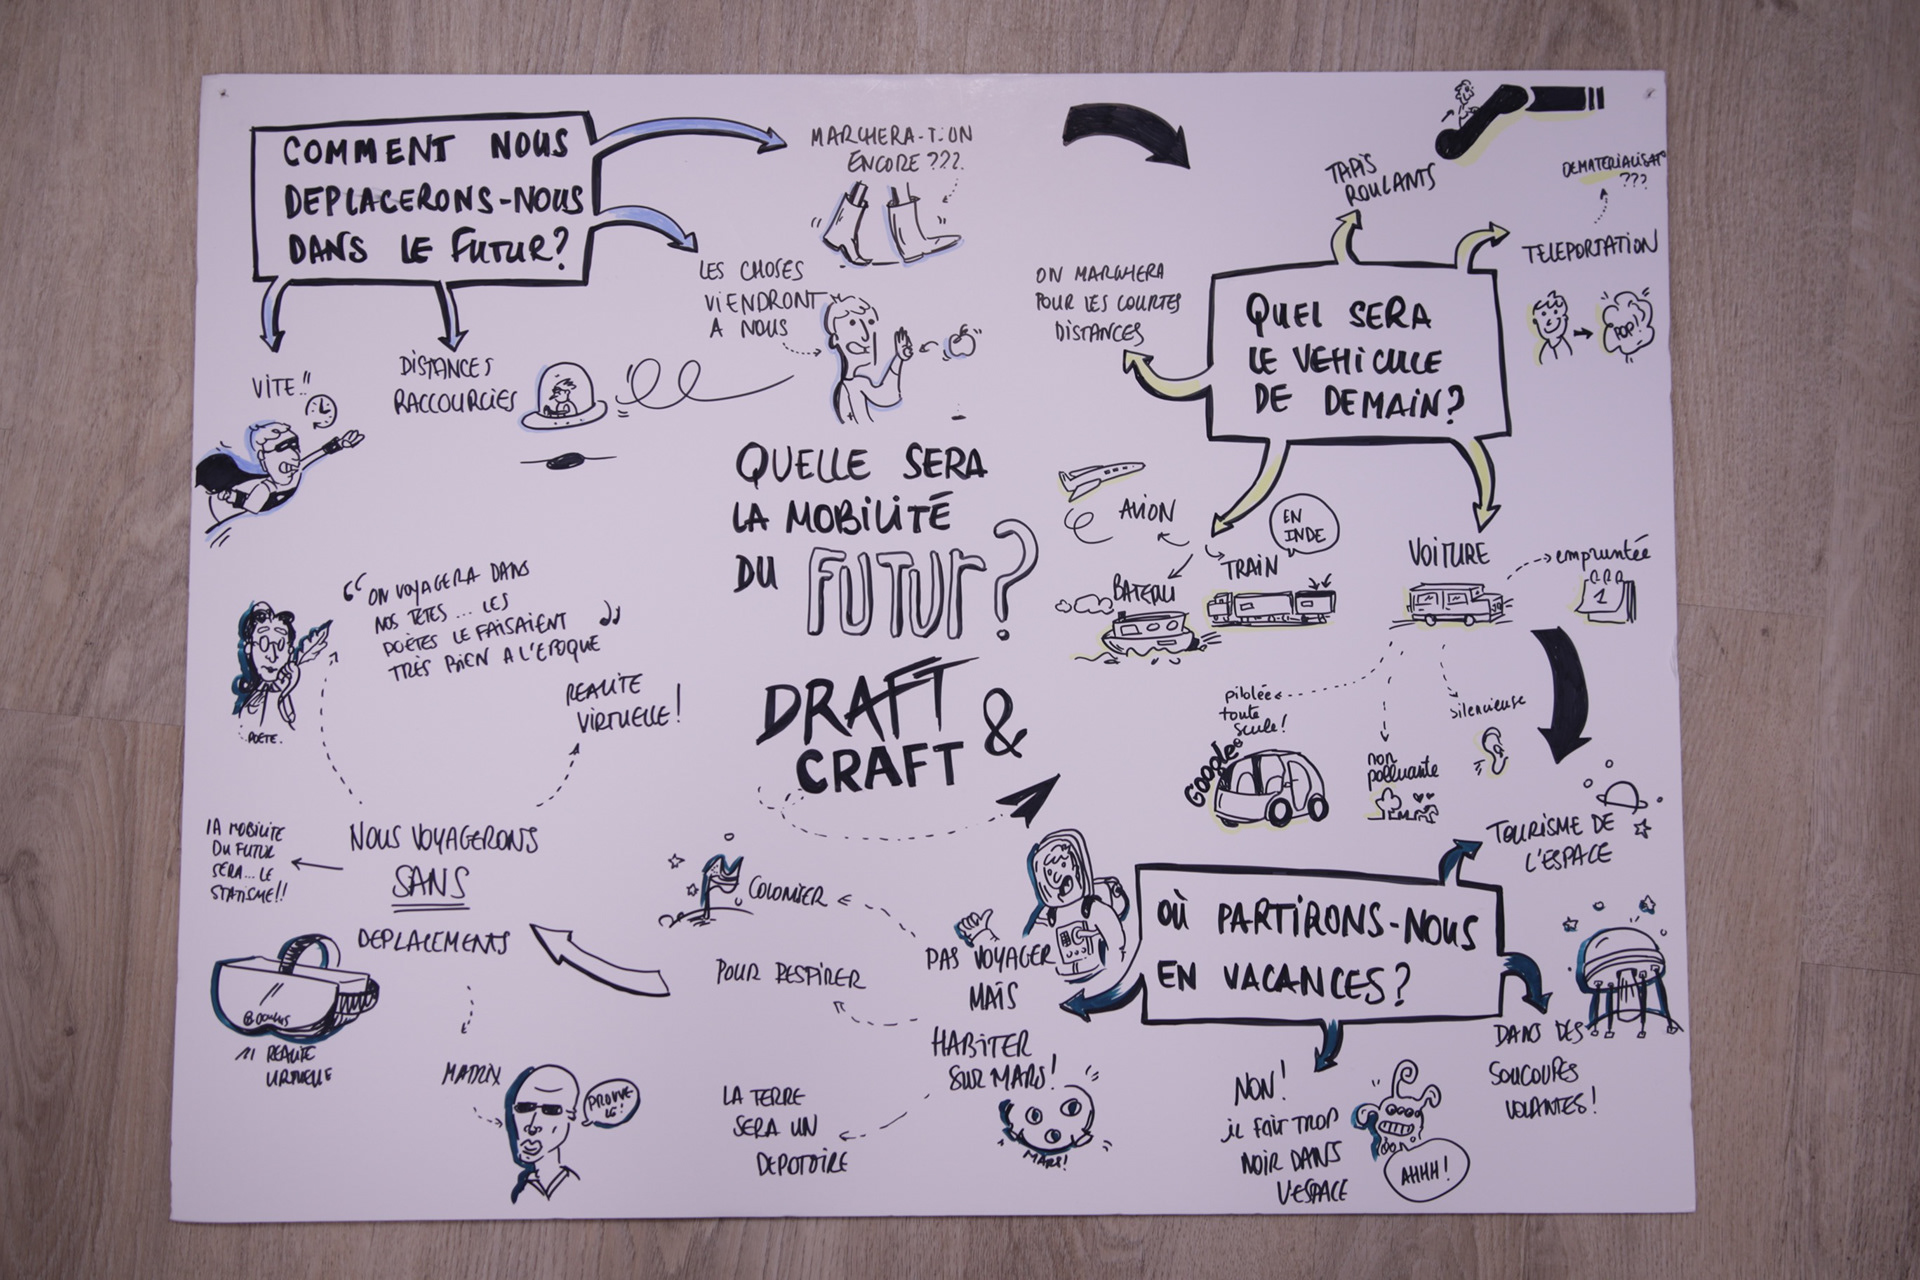 COMMENT NOUS
DEPLACERONS-NOUS
DANS LE FUTUR?
MARCHERA-T-ON
ENCORE ???
LES CHOSES
VIENDRONT
A NOUS
VITE !!
DISTANCES
RACCOURCIES
QUELLE SERA
LA MOBILITÉ
DU FUTUR?
DRAFT &
CRAFT
QUEL SERA
LE VEHICULE
DE DEMAIN?
TAPIS
ROULANTS
TELEPORTATION
DEMATERIALISAT°
???
POP!
ON MARCHERA
POUR LES COURTES
DISTANCES
AVION
BATEAU
TRAIN
EN
INDE
VOITURE
empruntée
1
pilotée
toute
seule!
GOOGLE
non
polluante
silencieuse
OÙ PARTIRONS-NOUS
EN VACANCES?
TOURISME DE
L'ESPACE
DANS DES
SOUCOUPES
VOLANTES!
NON!
il FAIT TROP
NOIR DANS
L'ESPACE
AHHH!
PAS VOYAGER
MAIS
HABITER
SUR MARS!
MARS!
COLONISER
POUR RESPIRER
LA TERRE
SERA UN
DEPOTOIRE
NOUS VOYAGERONS
SANS
DEPLACEMENTS
“ON VOYAGERA DANS
NOS TÊTES... LES
POÈTES LE FAISAIENT
TRÈS BIEN A L'EPOQUE”
POÈTE.
REALITE
VIRTUELLE!
LA MOBILITE
DU FUTUR
SERA... LE
STATISME!!
REALITE
MATRIX
PROUVE
LE!